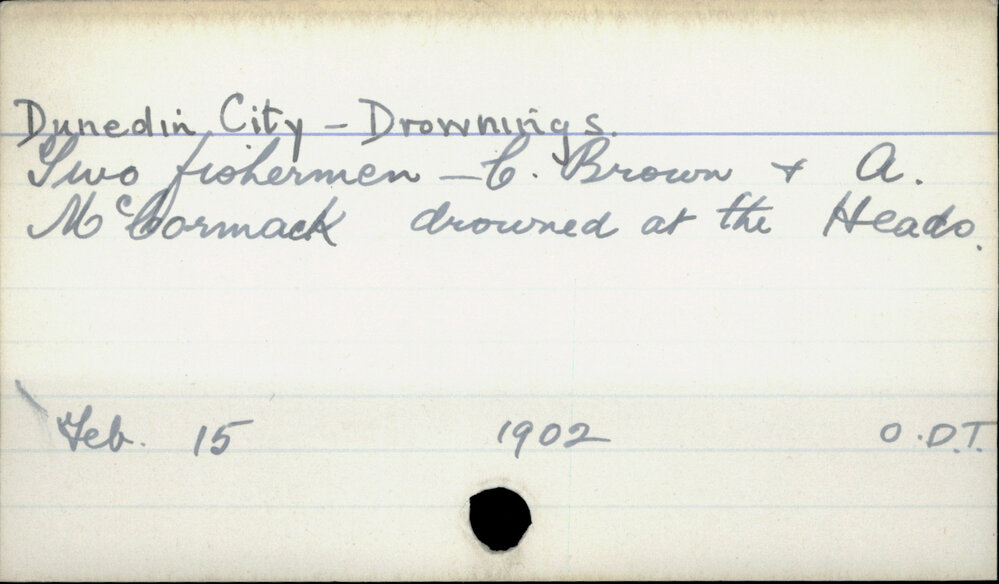 Dunedin City - Drownings.
Two fishermen - C. Brown + A.
McCormack drowned at the Heads.
Feb. 15 1902 O.D.T.